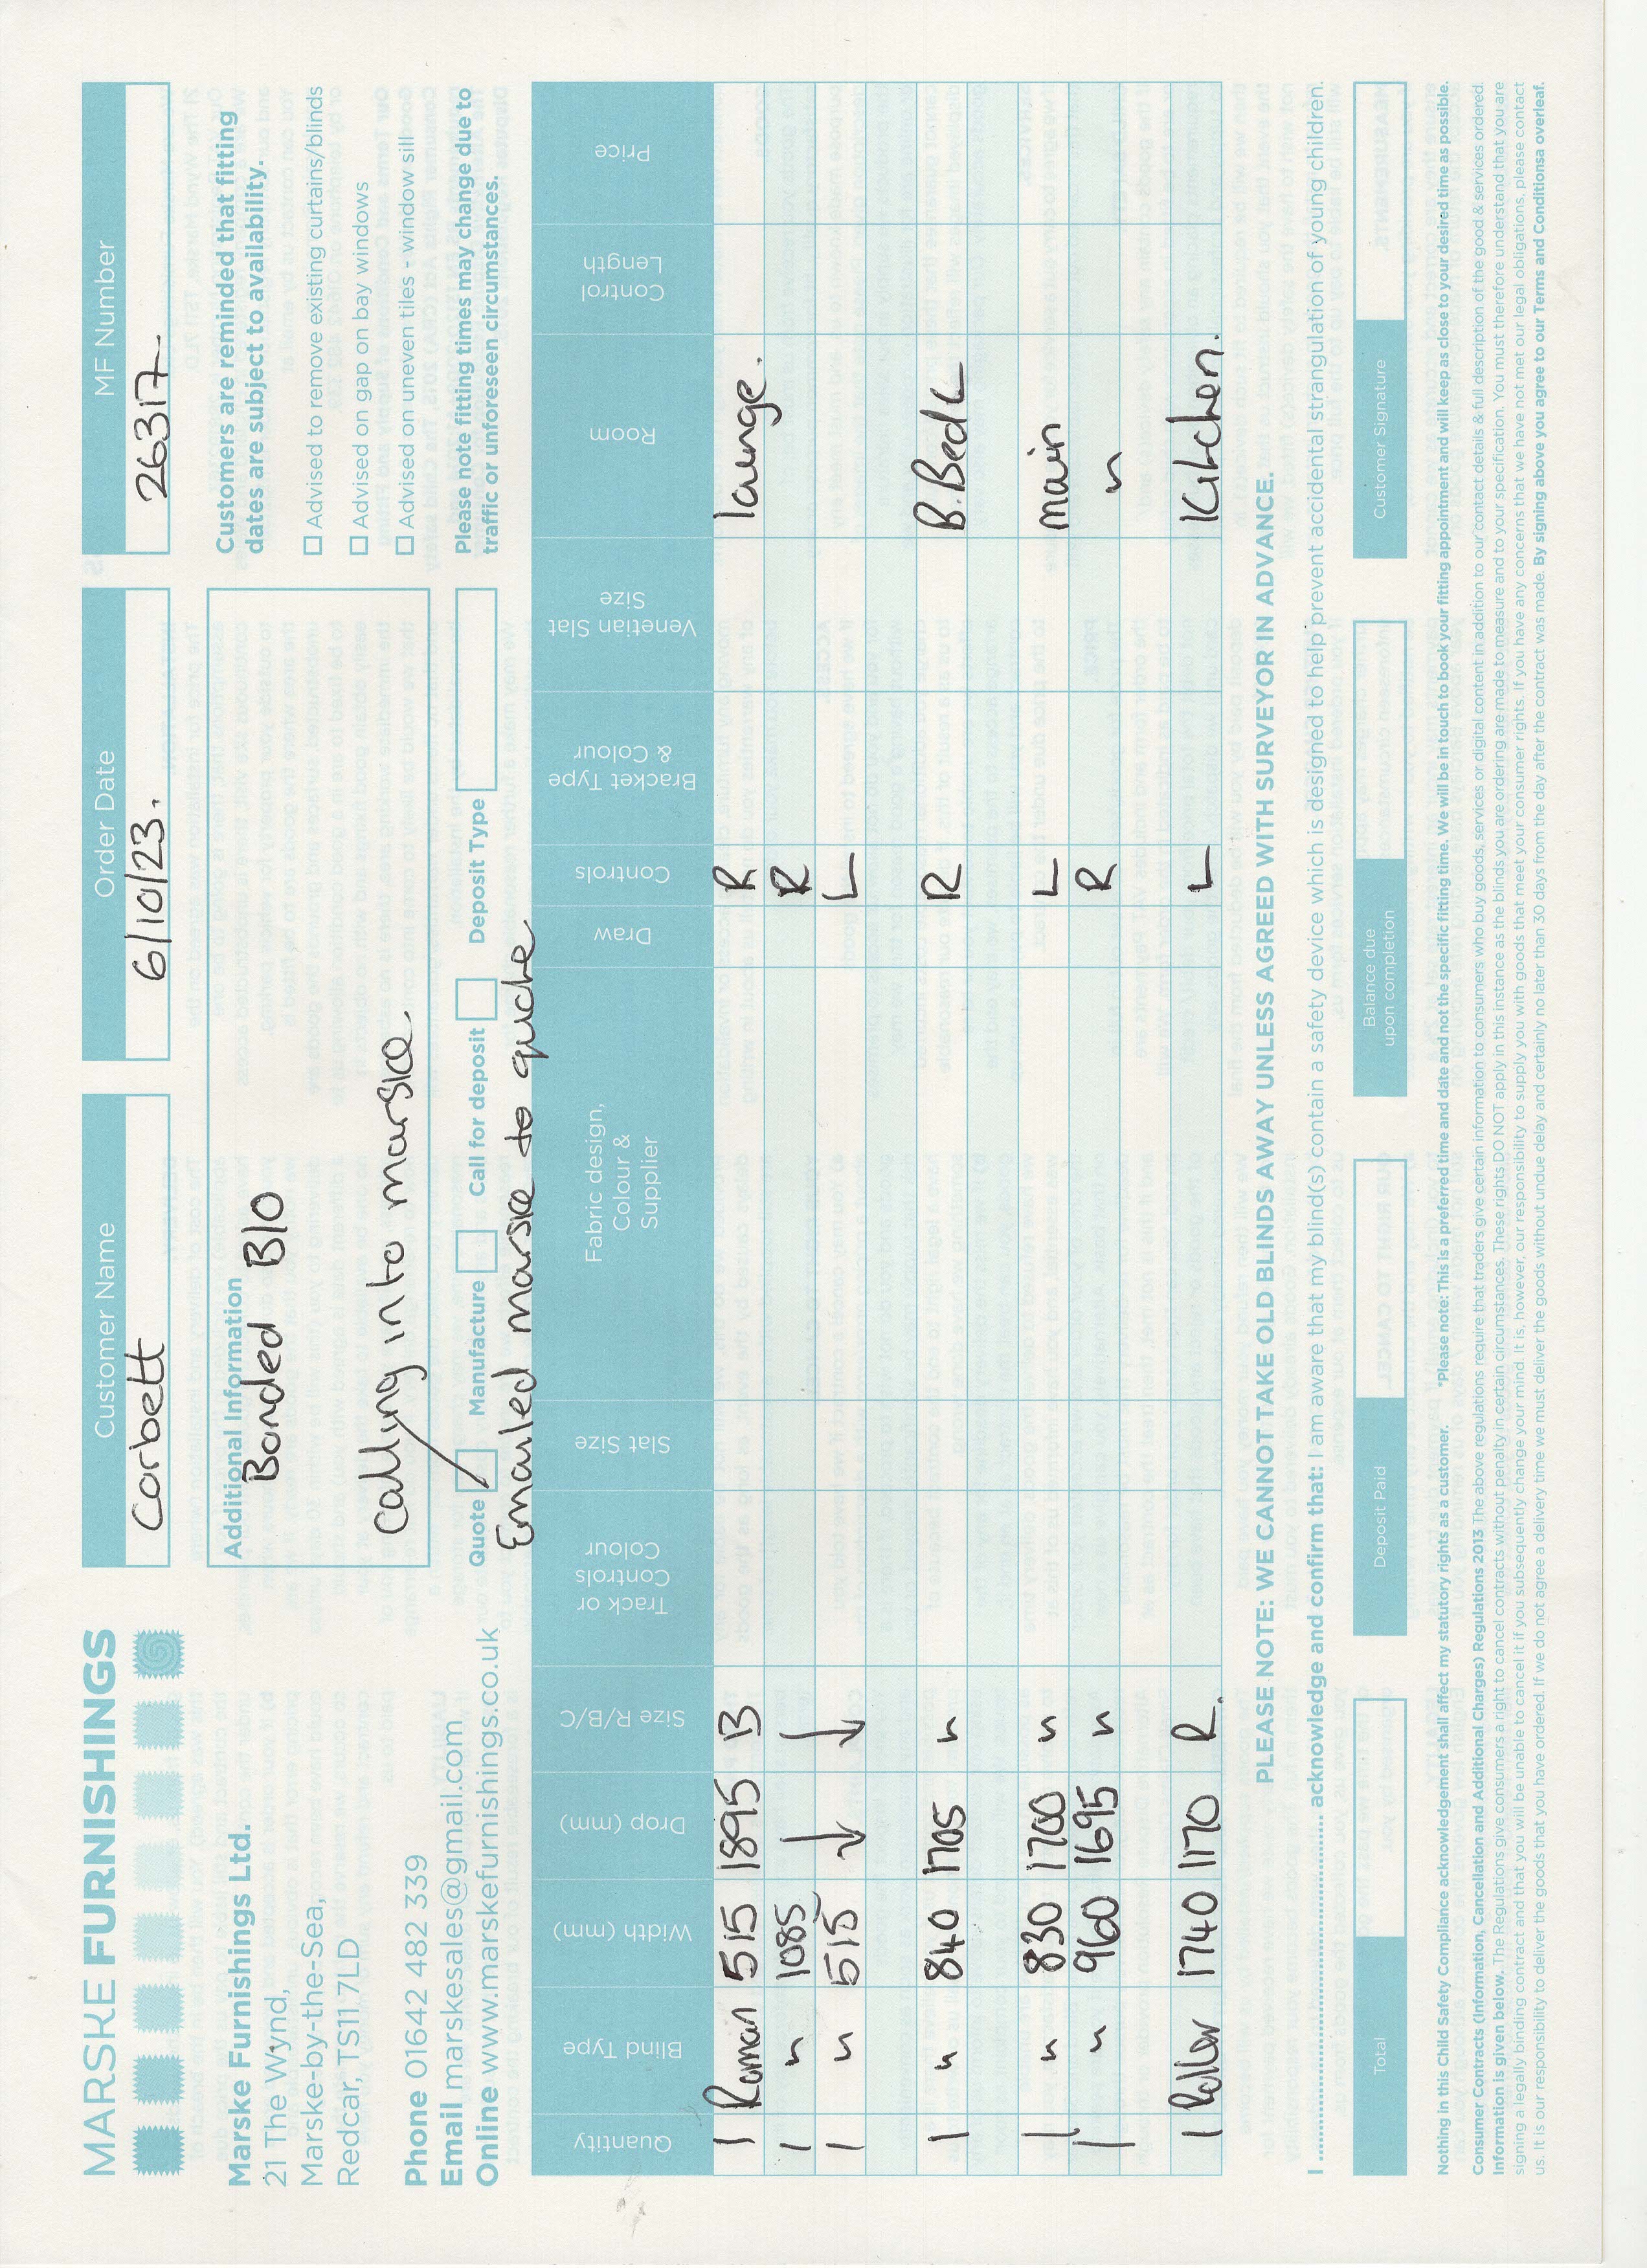 MARSKE FURNISHINGS
Marske Furnishings Ltd.
21 The Wynd,
Marske-by-the-Sea,
Redcar, TS11 7LD
Phone 01642 482 339
Email marskesales@gmail.com
Online www.marskefurnishings.co.uk
Customer Name
Corbett
Order Date
6/10/23.
MF Number
26317.
Additional Information
Bonded B/O
Calling into marske.
Quote Manufacture Call for deposit Deposit Type
Emailed marske to quote
Customers are reminded that fitting
dates are subject to availability.
Advised to remove existing curtains/blinds
Advised on gap on bay windows
Advised on uneven tiles - window sill
Please note fitting times may change due to
traffic or unforeseen circumstances.
Quantity Blind Type Width (mm) Drop (mm) Size R/B/C Track or Controls Colour Slat Size Fabric design, Colour & Supplier Draw Controls Bracket Type & Colour Venetian Slat Size Room Control Length Price
1 Roman 515 1895 B R lounge.
1 " 1085 R
1 " 515 L
1 " 840 1705 " R B.Bed
1 " 830 1700 " L main
1 " 960 1695 " R "
1 Roller 1740 1170 R. L Kitchen.
PLEASE NOTE: WE CANNOT TAKE OLD BLINDS AWAY UNLESS AGREED WITH SURVEYOR IN ADVANCE.
I .......... acknowledge and confirm that: I am aware that my blind(s) contain a safety device which is designed to help prevent accidental strangulation of young children.
Total Deposit Paid Balance due upon completion Customer Signature
Nothing in this Child Safety Compliance acknowledgement shall affect my statutory rights as a customer. *Please note: This is a preferred time and date and not the specific fitting time. We will be in touch to book your fitting appointment and will keep as close to your desired time as possible.
Consumer Contracts (Information, Cancellation and Additional Charges) Regulations 2013 The above regulations require that traders give certain information to consumers who buy goods, services or digital content in addition to our contact details & full description of the good & services ordered.
Information is given below. The Regulations give consumers a right to cancel contracts without penalty in certain circumstances. These rights DO NOT apply in this instance as the blinds you are ordering are made to measure and to your specification. You must therefore understand that you are
signing a legally binding contract and that you will be unable to cancel it if you subsequently change your mind. It is, however, our responsibility to supply you with goods that meet your consumer rights. If you have any concerns that we have not met our legal obligations, please contact
us. It is our responsibility to deliver the goods that you have ordered. If we do not agree a delivery time we must deliver the goods without undue delay and certainly no later than 30 days from the day after the contract was made. By signing above you agree to our Terms and Conditionsa overleaf.